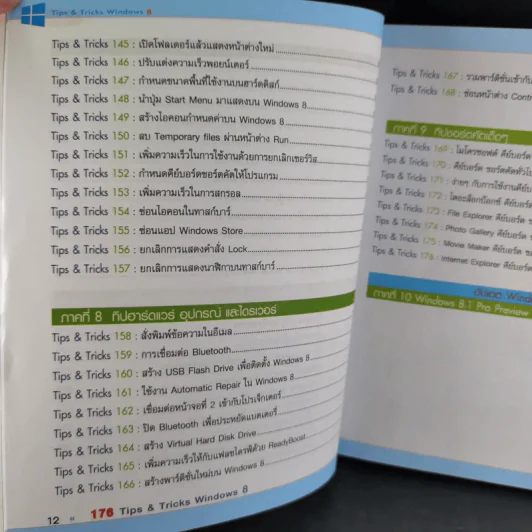 Tips & Tricks Windows 8
Tips & Tricks 145 : เปิดโฟลเดอร์แล้วแสดงหน้าต่างใหม่
Tips & Tricks 146 : ปรับแต่งความเร็วพอยน์เตอร์
Tips & Tricks 147 : กำหนดขนาดพื้นที่ใช้งานบนฮาร์ดดิสก์
Tips & Tricks 148 : นำปุ่ม Start Menu มาแสดงบน Windows 8
Tips & Tricks 149 : สร้างไอคอนกำหนดค่าบน Windows 8
Tips & Tricks 150 : ลบ Temporary files ผ่านหน้าต่าง Run
Tips & Tricks 151 : เพิ่มความเร็วในการใช้งานด้วยการยกเลิกเซอร์วิส
Tips & Tricks 152 : กำหนดคีย์บอร์ดชอร์ตคัตให้โปรแกรม
Tips & Tricks 153 : เพิ่มความเร็วในการสกรอล
Tips & Tricks 154 : ซ่อนไอคอนในทาสก์บาร์
Tips & Tricks 155 : ซ่อนแอป Windows Store
Tips & Tricks 156 : ยกเลิกการแสดงคำสั่ง Lock
Tips & Tricks 157 : ยกเลิกการแสดงนาฬิกาบนทาสก์บาร์
ภาคที่ 8 ทิปฮาร์ดแวร์ อุปกรณ์ และไดรเวอร์
Tips & Tricks 158 : สั่งพิมพ์ข้อความในอีเมล
Tips & Tricks 159 : การเชื่อมต่อ Bluetooth
Tips & Tricks 160 : สร้าง USB Flash Drive เพื่อติดตั้ง Windows 8
Tips & Tricks 161 : ใช้งาน Automatic Repair ใน Windows 8
Tips & Tricks 162 : เชื่อมต่อหน้าจอที่ 2 เข้ากับโปรเจ็กเตอร์
Tips & Tricks 163 : ปิด Bluetooth เพื่อประหยัดแบตเตอรี่
Tips & Tricks 164 : สร้าง Virtual Hard Disk Drive
Tips & Tricks 165 : เพิ่มความเร็วให้กับแฟลชไดรฟ์ด้วย ReadyBoost
Tips & Tricks 166 : สร้างพาร์ติชั่นใหม่บน Windows 8
12 176 Tips & Tricks Windows 8
Tips & Tricks 167 : รวมพาร์ติชั่นเข้า
Tips & Tricks 168 : ซ่อนหน้าต่าง
ภาคที่ 9 ทิปชอร์ตคัตเด็ดๆ
Tips & Tricks 169 : ไมโครซอฟต์ คีย์บอร์ด
Tips & Tricks 170 : คีย์บอร์ด ชอร์ตคัตทั่วไป
Tips & Tricks 171 : ง่ายๆ กับการใช้งานคีย์
Tips & Tricks 172 : ไดอะล็อกบ็อกซ์ คีย์บอร์ด
Tips & Tricks 173 : File Explorer คีย์บอร์ด
Tips & Tricks 174 : Photo Gallery คีย์บอร์ด
Tips & Tricks 175 : Movie Maker คีย์บอร์ด
Tips & Tricks 176 : Internet Explorer คีย์บอร์ด
อัปเดต
ภาคที่ 10 Windows 8.1 Pro Preview